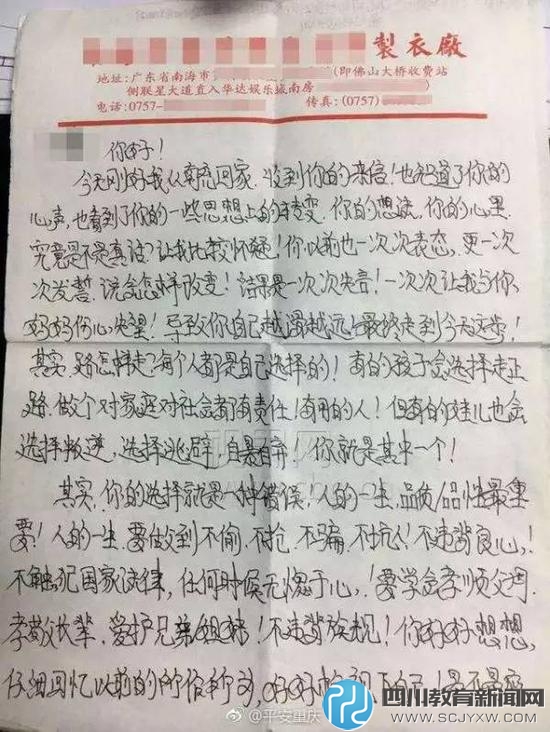 製衣廠
地址:广东省南海市 (即佛山大桥收费站
侧联星大道直入华达娱乐城南房
电话:0757- 传真:(0757)
你好!
今天刚好我从南充回家.收到你的来信!也知道了你的
心声,也看到了你的一些思想上的转变.你的想法.你的心里
究竟是不是真话?让我比较怀疑!你以前也一次次表态,更一次
次发誓.说会怎样改变!结果是一次次失言!一次次让我与你
妈妈伤心失望!导致你自己越滑越远.最终走到今天这步!
其实.路怎样走?每个人都是自己选择的!有的孩子会选择走正
路.做个对家庭对社会都有责任!有用的人!但有的娃儿也会
选择叛逆.选择逃避.自暴自弃!你就是其中一个!
其实.你的选择就是一种错误.人的一生.品质/品性最重
要!人的一生.要做到不偷.不抢.不骗.不坑人!不违背良心,!
不触犯国家法律,任何时候无愧于心,!要学会孝顺父母.
孝敬长辈.爱护兄弟姐妹!不违背族规!你好好想想,
仔细回忆以前的所作所为,
@平安重庆
四川教育新闻网
WWW.SCJYXW.COM